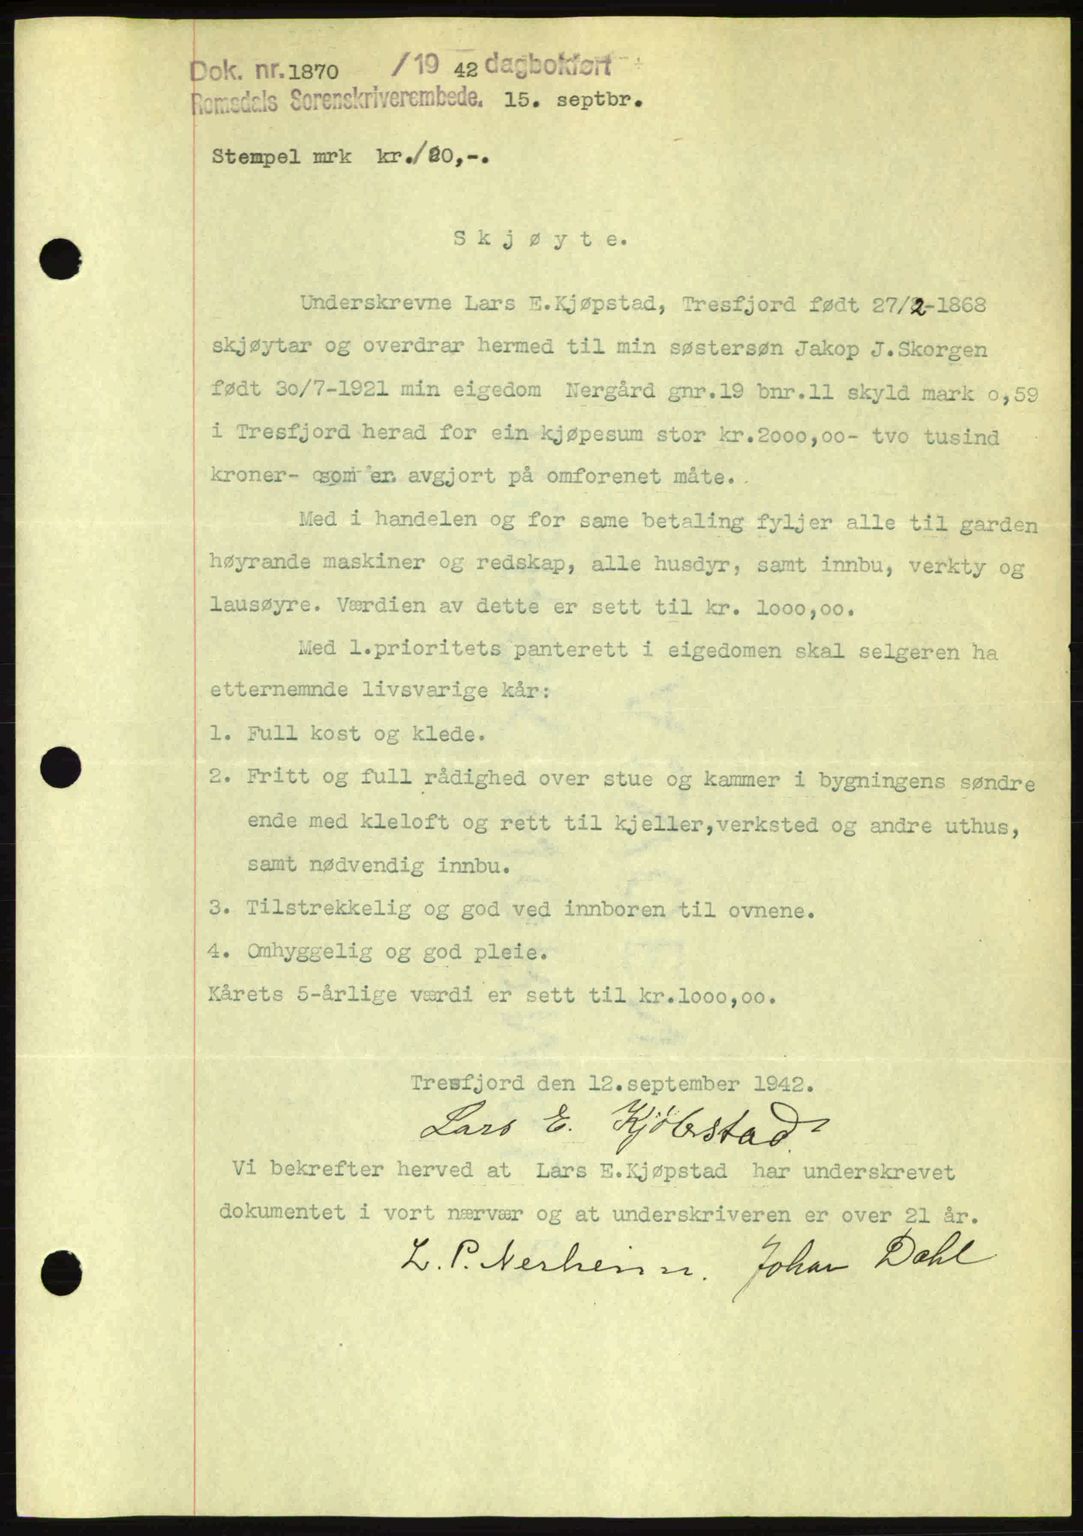 Dok. nr. 1870 /19 42 dagbokført
Romsdals Sorenskriverembede. 15. septbr.
Stempel mrk kr./20,-.
Skjøyte.
Underskrevne Lars E.Kjøpstad, Tresfjord født 27/2-1868
skjøytar og overdrar hermed til min søstersøn Jakop J.Skorgen
født 30/7-1921 min eigedom Nergård gnr.19 bnr.11 skyld mark 0,59
i Tresfjord herad for ein kjøpesum stor kr.2000,00- tvo tusind
kroner- som er avgjort på omforenet måte.
Med i handelen og for same betaling fyljer alle til garden
høyrande maskiner og redskap, alle husdyr, samt innbu, verkty og
lausøyre. Værdien av dette er sett til kr. 1000,00.
Med 1.prioritets panterett i eigedomen skal selgeren ha
etternemnde livsvarige kår:
1. Full kost og klede.
2. Fritt og full rådighed over stue og kammer i bygningens søndre
ende med kleloft og rett til kjeller,verksted og andre uthus,
samt nødvendig innbu.
3. Tilstrekkelig og god ved innboren til ovnene.
4. Omhyggelig og god pleie.
Kårets 5-årlige værdi er sett til kr.1000,00.
Tresfjord den 12.september 1942.
Lars E. Kjöbstad
Vi bekrefter herved at Lars E.Kjøpstad har underskrevet
dokumentet i vort nærvær og at underskriveren er over 21 år.
L. P. Nerheim. Johan Dahl